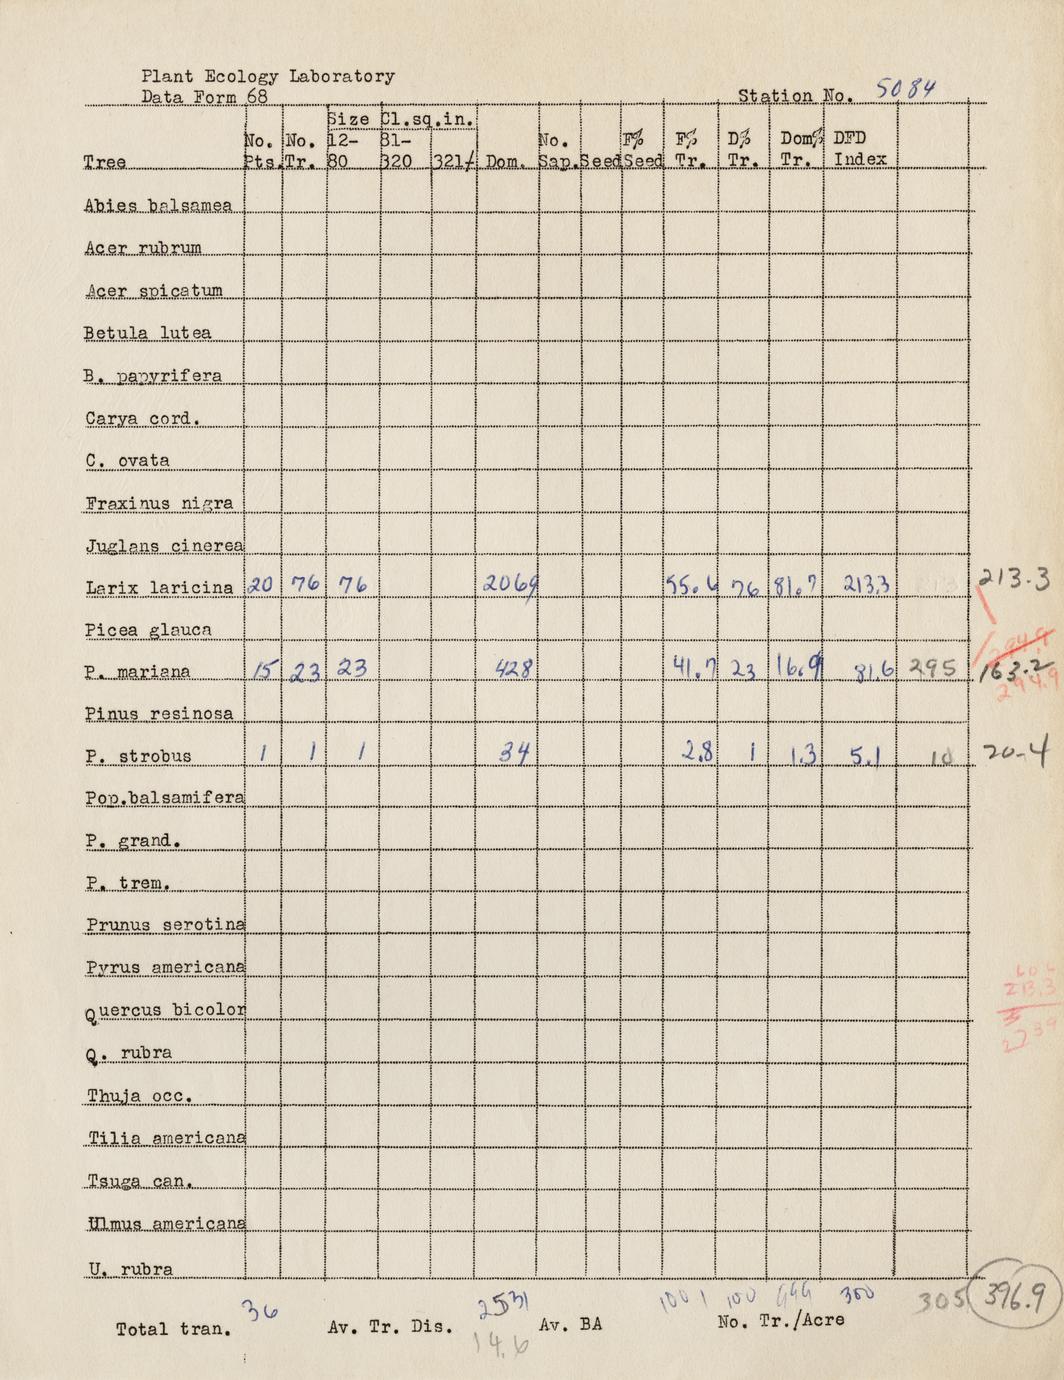 Plant Ecology Laboratory
Data Form 68 Station No. 5084
Size Cl.sq.in.
No. No. 12- 81- No. F% F% D% Dom% DFD
Tree Pts. Tr. 80 320 321/ Dom. Sap. Seed Seed Tr. Tr. Tr. Index
Abies balsamea
Acer rubrum
Acer spicatum
Betula lutea
B. papyrifera
Carya cord.
C. ovata
Fraxinus nigra
Juglans cinerea
Larix laricina 20 76 76 2069 55.6 76 81.7 213.3 213.3
Picea glauca
P. mariana 15 23 23 428 41.7 23 16.9 81.6 295 163.2
294.9
Pinus resinosa
P. strobus 1 1 1 34 2.8 1 1.3 5.1 10 20.4
Pop.balsamifera
P. grand.
P. trem.
Prunus serotina
Pyrus americana
213.3
Quercus bicolor
Q. rubra
Thuja occ.
Tilia americana
Tsuga can.
Ulmus americana
U. rubra
36 2531 100 1 100 999 300 305 396.9
Total tran. Av. Tr. Dis. Av. BA No. Tr./Acre
14.6